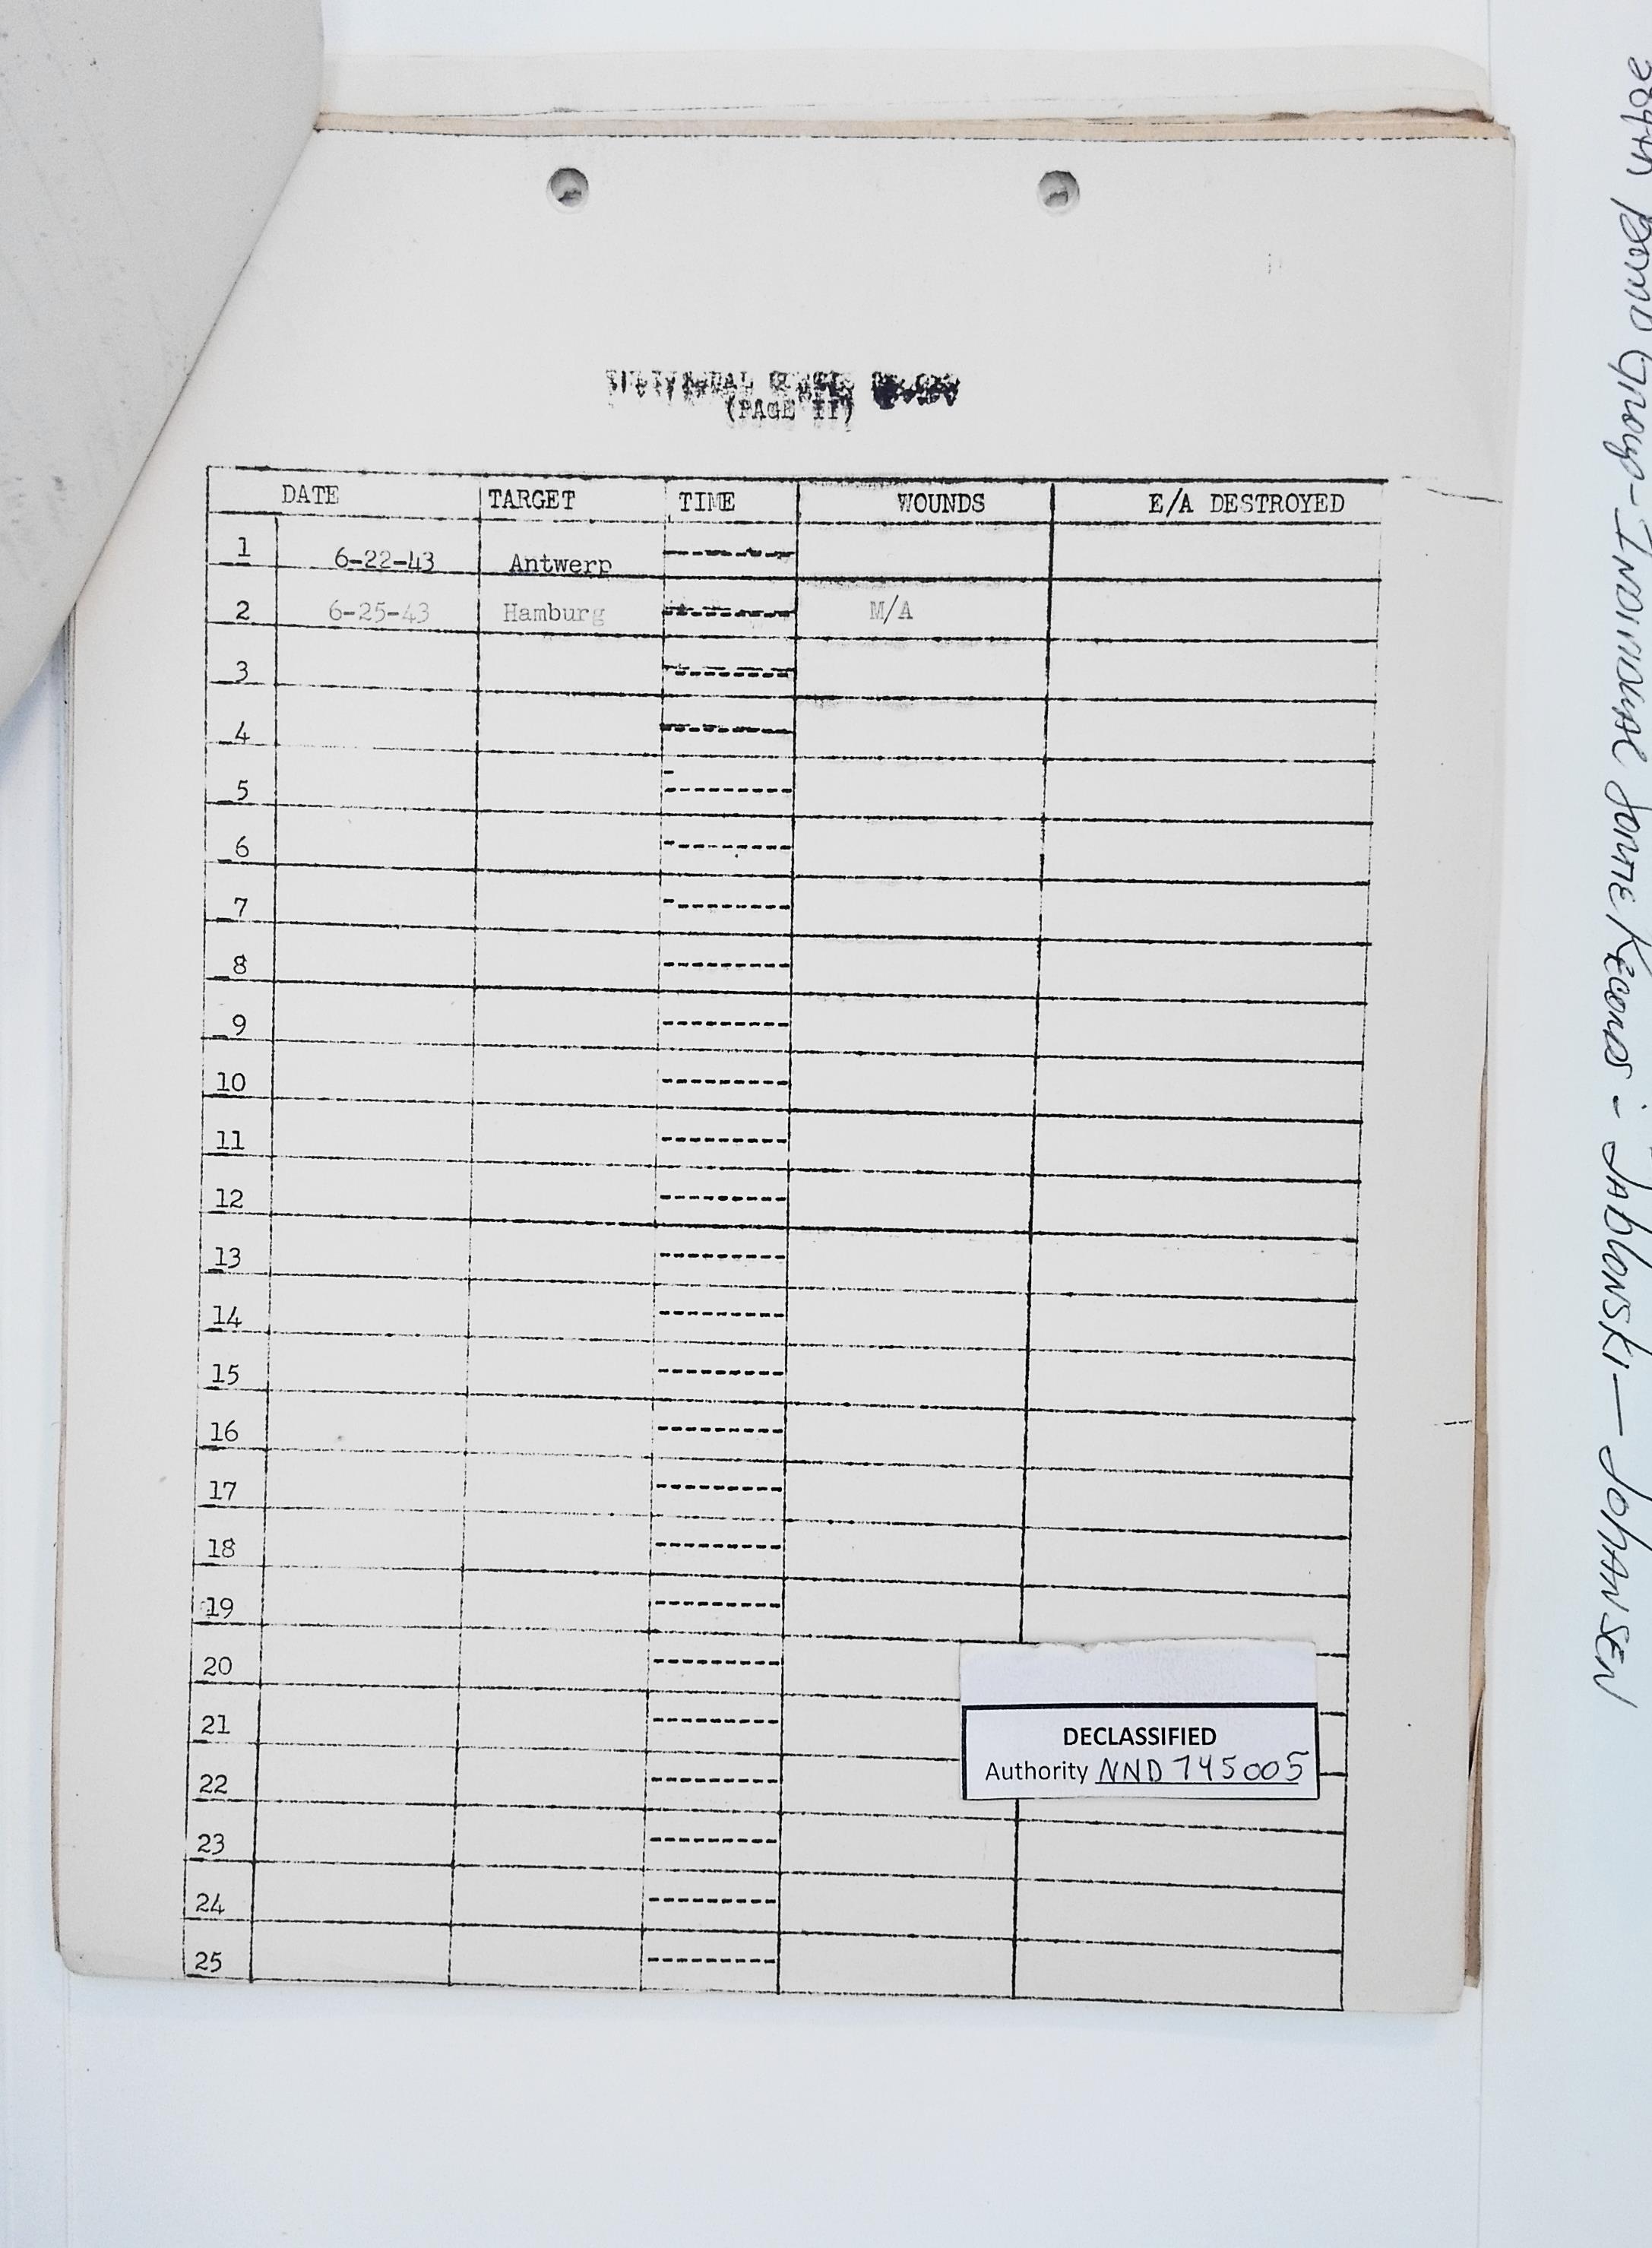 (PAGE II)
DATE TARGET TIME WOUNDS E/A DESTROYED
1 6-22-43 Antwerp
2 6-25-43 Hamburg M/A
3
4
5
6
7
8
9
10
11
12
13
14
15
16
17
18
19
20
21
22
23
24
25
DECLASSIFIED
Authority NND 745005
384th Bomb Group - Individual Sortie Records : Jablonski — Johansen